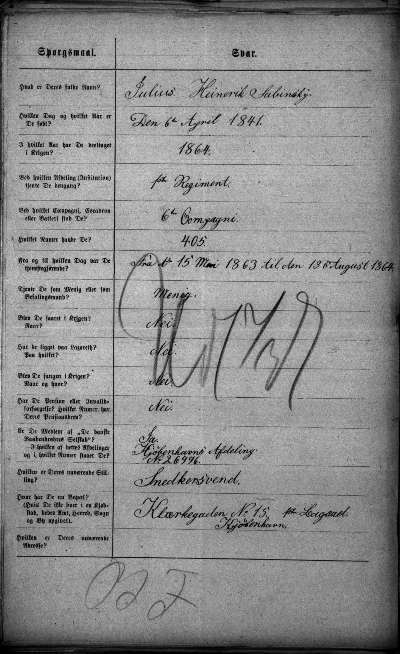 Spørgsmaal. Svar.
Hvad er Deres fulde Navn? Julius Heinerik Sabinsky.
Hvilken Dag og hvilket Aar er
De født? Den 6te April 1841.
I hvilket Aar har De deeltaget
i Krigen? 1864.
Ved hvilken Afdeling (Institution)
tjente De dengang? Regiment.
Ved hvilket Compagni, Escadron
eller Batteri stod De? 6te Compagni.
Hvilket Numer havde De? 405
Fra og til hvilken Dag var De
tjenstgjørende? Fra 15 Mai 1863 til den 13 August 1864.
Tjente De som Menig eller som
Befalingsmand? Menig.
Blev De saaret i Krigen?
Naar? Nei.
Har De ligget paa Lazareth?
Paa hvilket? Nei.
Blev De fangen i Krigen?
Naar og hvor? Nei.
Har De Pension eller Invalid-
forsørgelse? Hvilket Numer har
Deres Pensionsbrev? Nei.
Er De Medlem af „De danske
Vaabenbrødres Selskab"? Ja.
I hvilken af dets Afdelinger
og i hvilket Numer staaer De? Kjøbenhavns Afdeling.
№ 26996.
Hvilken er Deres nuværende Stil-
ling? Snedkersvend.
Hvor har De nu Bopæl?
(Hvis De ikke boer i en Kjøb-
stad, bedes Amt, Herred, Sogn
og By opgivet). Klærkegaden № 15
Kjøbenhavn.
Hvilken er Deres nuværende
Adresse?